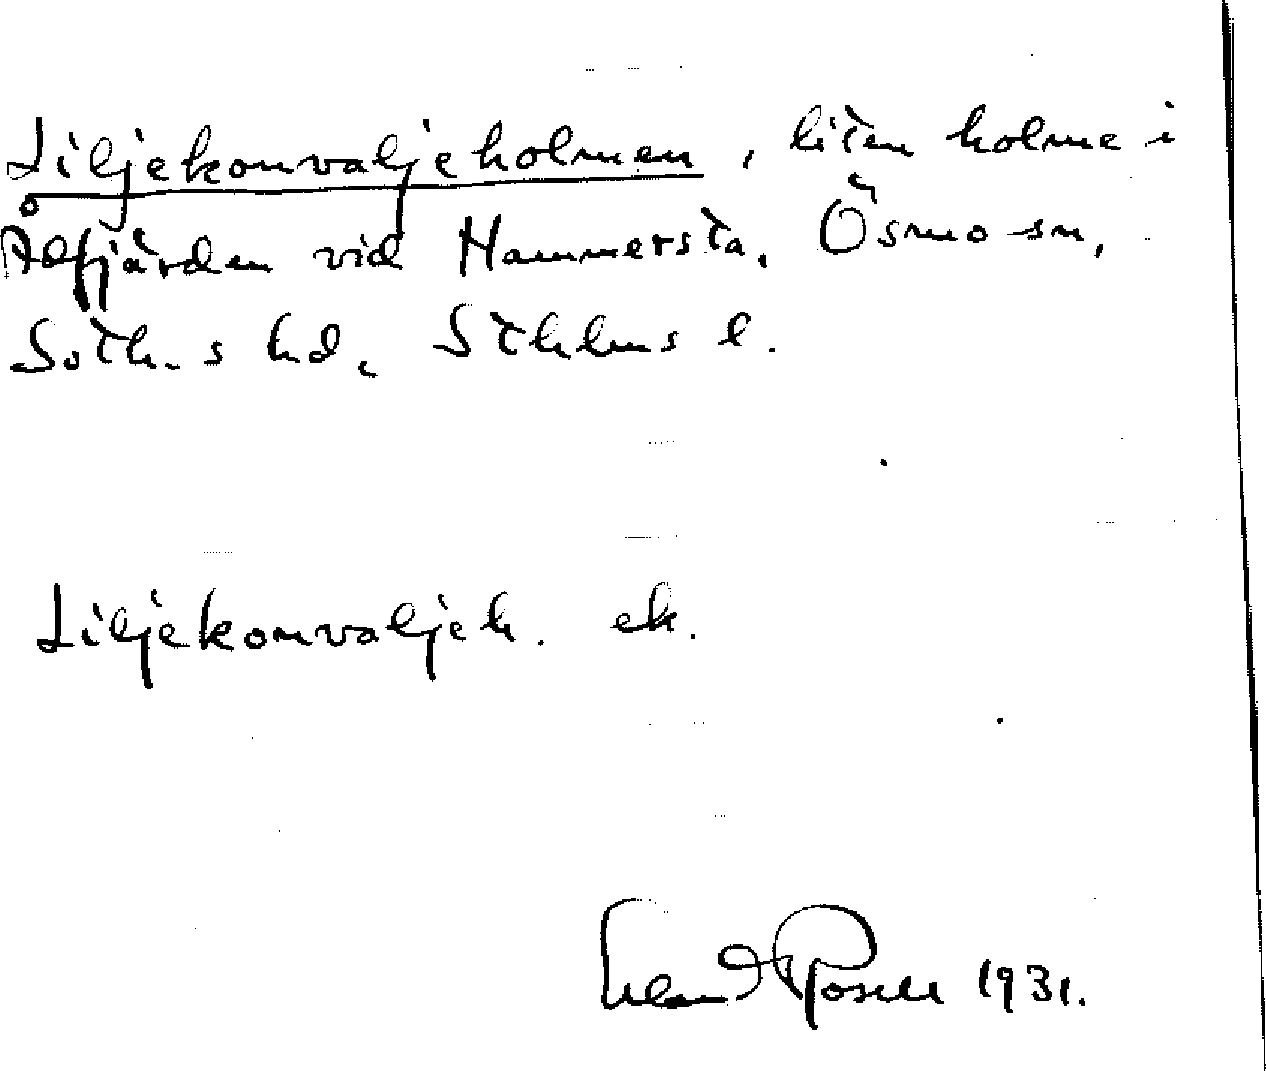 Liljekonvaljeholmen, liten holme i
Ålfjärden vid Hammersta, Ösmo sn,
Soth.s hd, Sthlms l.
Liljekonvaljeh. ek.
Erland Rosell 1931.